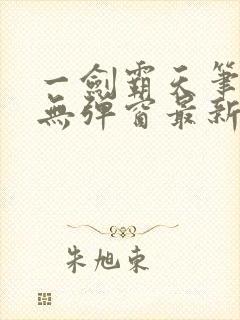 一劍霸天筆
無彈窗最新
朱旭東